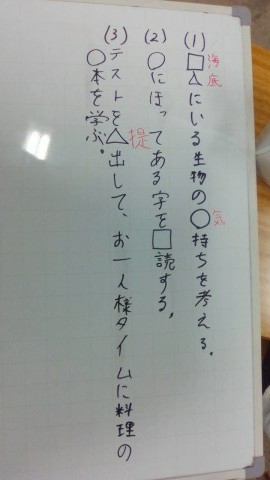 (1) □△にいる生物の○持ちを考える。
海底
気
(2) ○にほってある字を□読する。
(3) テストを△出して、お一人様タイムに料理の
提
○本を学ぶ。